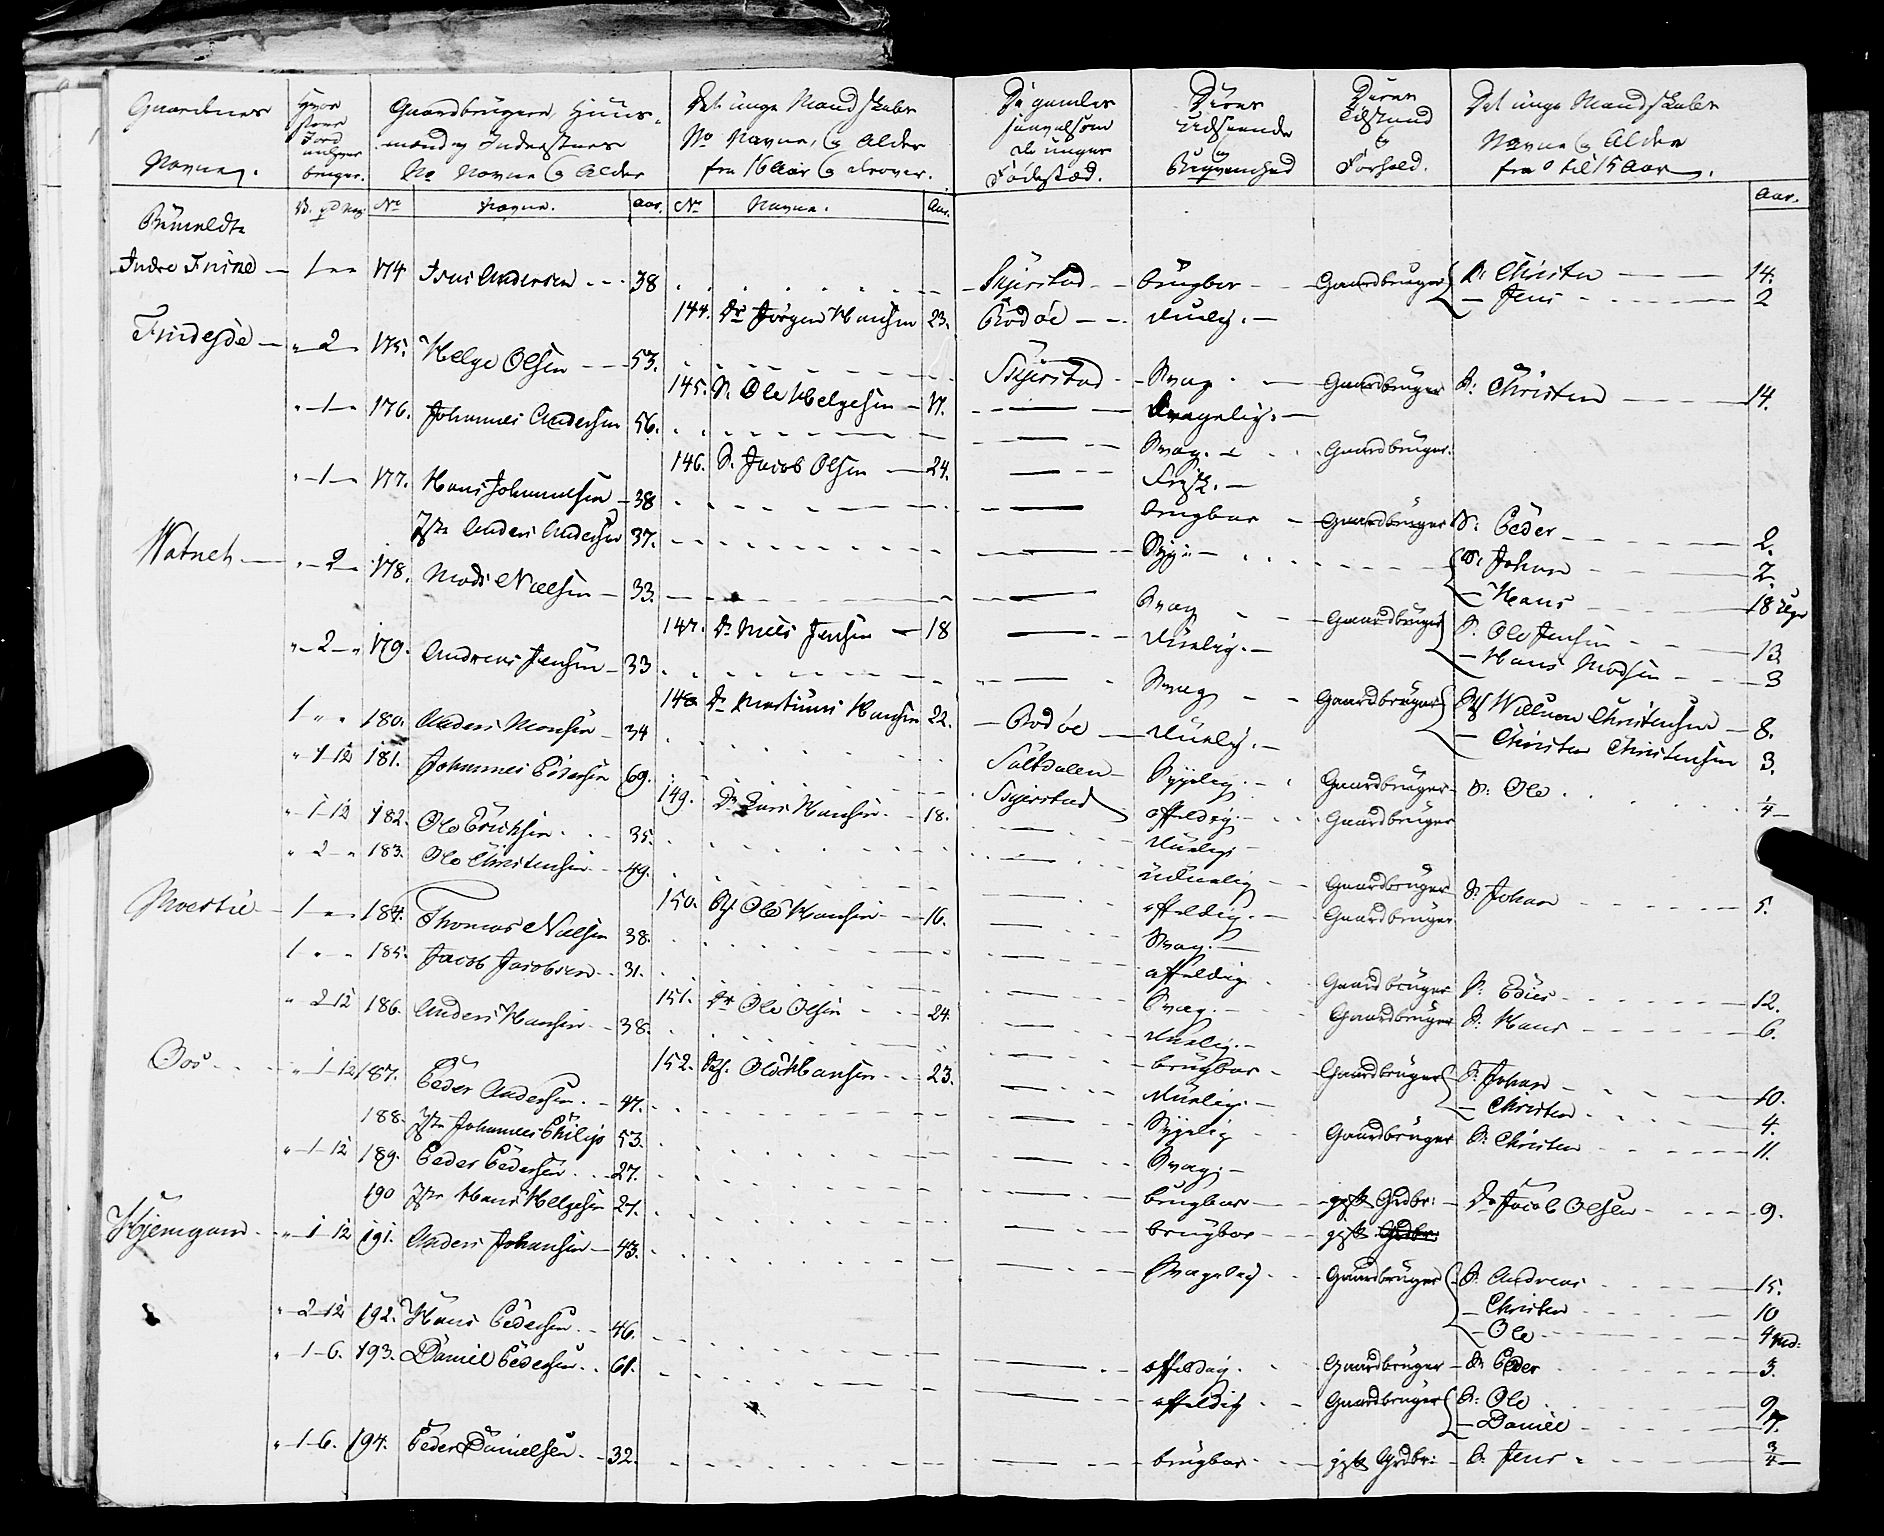 Gaardenes Navne.
Hvor stor Jord enhver bruger.
Gaardbrugere, Huus-
mænd og Inderster
No Navne og Alder
Det unge Mandskabs
No Navne, og Alder
fra 16 Aar og derover.
De gamles
saavelsom
de unges
Fødested.
Deres
Udseende
og
Deres
Tilstand
og
Forhold.
Det unge Mandskabs
Navne og Alder
fra 0 til 15 Aar.
No Navne. Aar. No Navne. Aar. Aar.
Indre 1 174 Andersen 38 Skjerstad brugbar Gaardbruger S: Christen 14.
Jens 2
144. Dr Jørgen Hansen 23. Bodøe duelig.
2 175. Helge Olsen 53. Skjerstad Svag Gaardbruger S: Christen 14.
145. S. Ole Helgesen 17. svagelig.
1 176. Johannes Andersen 56. Svag. Gaardbruger.
146. S. Jacob Olsen 24. Frisk.
1 177. Hans Johannesen 38 brugbar Gaardbruger S: Peder 2.
Anders Andersen 37. S: Johan 2.
Hans 18 Uger
Watneh 2 178. Mads Nielsen 33. Svag Gaardbruger S. Ole Jensen 13
Hans Madsen 3
147. Dr Niels Jensen 18 duelig.
2 179. Andreas Jensen 33 Svag Gaardbruger Willum Christensen 8.
Christen Christensen 3.
148. Dr Martinus Hansen 22. Bodøe duelig.
1 180. Anders Monsen 34 Saltdalen Sygelig. Gaardbruger S: Ole 1/4
1 12 181. Johannes Pedersen 69. Skjerstad affældig. Gaardbruger
149. Dr Lars Hansen 18. duelig
1 12 182. Ole Erichsen 35. uduelig Gaardbruger S: Johan 5.
2 183. Ole Christensen 49. affældig. Gaardbruger
150. Ole Hansen 16. Svag.
1 184. Thomas Nielsen 38. affældig Gaardbruger S: 12.
1 185. Jacob Jacobsen 31. Svag. Gaardbruger S. Hans 6.
151. Dr Ole Olsen 24. duelig.
2 12 186. Anders Hansen 38. brugbar Gaardbruger S. Johan 10.
Christen 4.
152. Ole Hansen 23. duelig.
1 12 187. Peder Andersen. 47. Sygelig Gaardbruger S. Christen 11.
188. Johannes Philip 53. Svag.
1 12 189. Peder Pedersen 27. brugbar gift Grdbr: Jacob Olsen 9.
190 Hans Helgesen 27. brugbar gift Grdbr:
Hjemgam 1 12 191. Anders Johansen 43. Svagelig Gaardbruger S. Andreas 15.
Christen 10
Ole 4
2 12 192. Hans Pedersen 46. affældig. Gaardbruger S: Peder 3.
1 6. 193. Daniel Pedersen 61. affældig Gaardbruger S: Ole 9
Daniel 7.
1 6. 194. Peder Danielsen 32. brugbar gift Grdbr: S. Jens 3/4